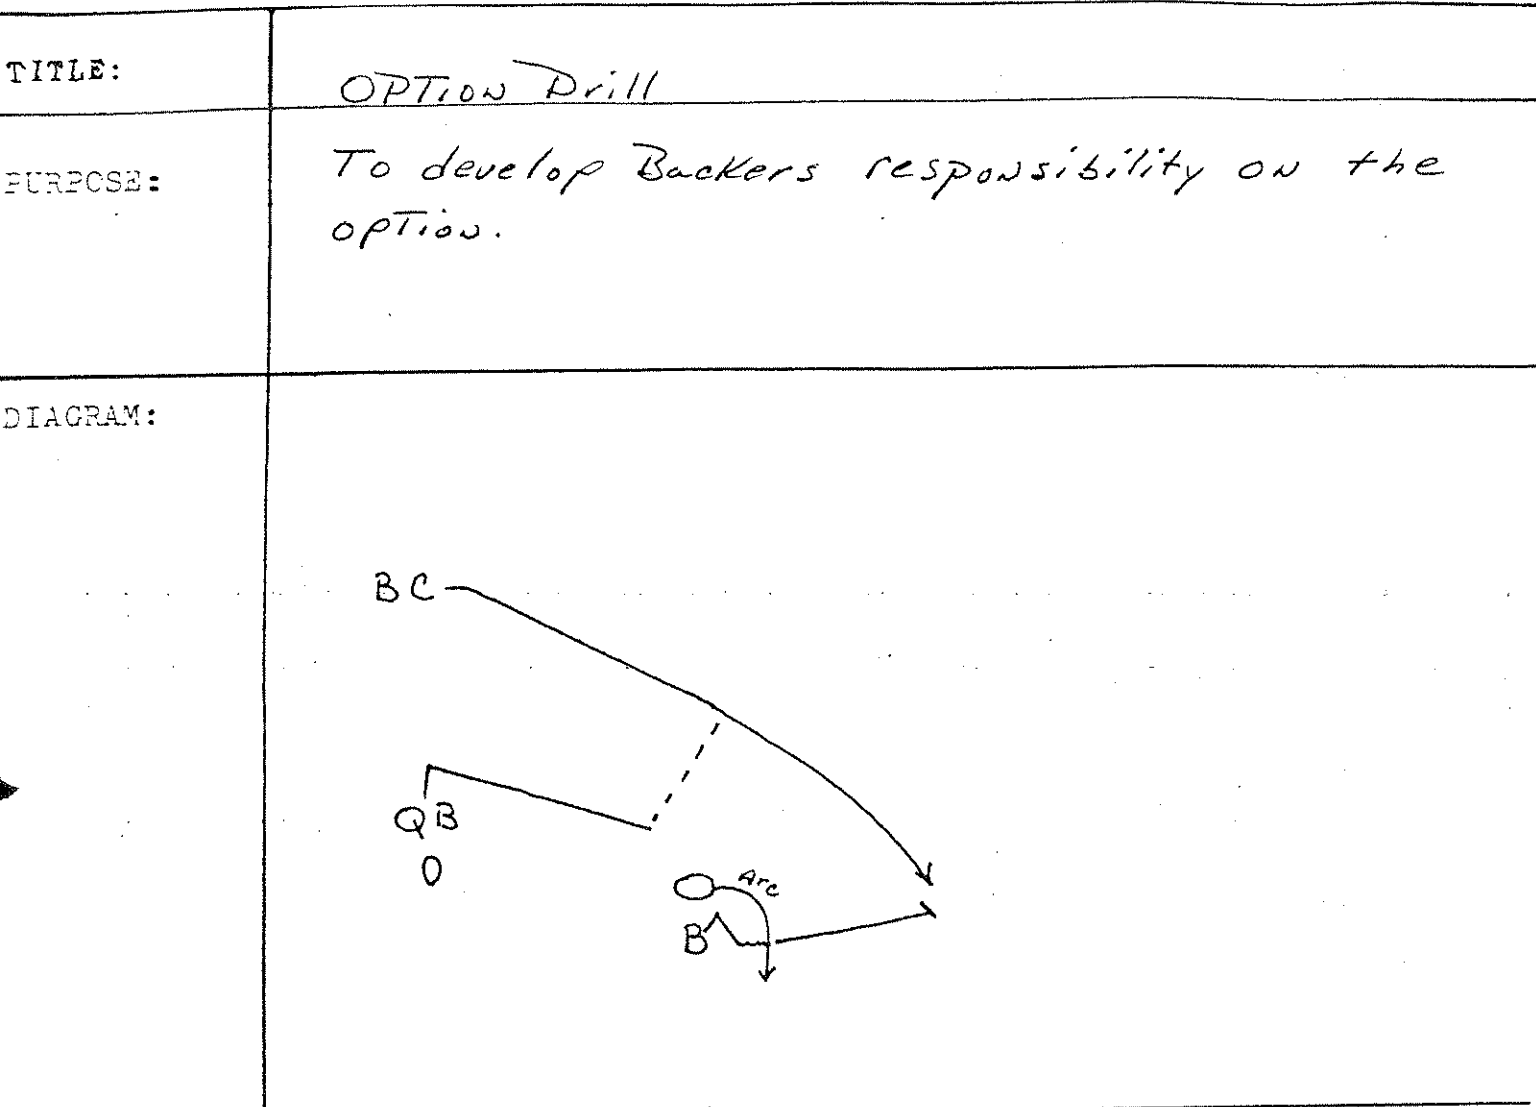 TITLE: OPTION Drill
PURPOSE: To develop Backers responsibility on the
option.
DIAGRAM:
BC
QB
O
O Arc
B